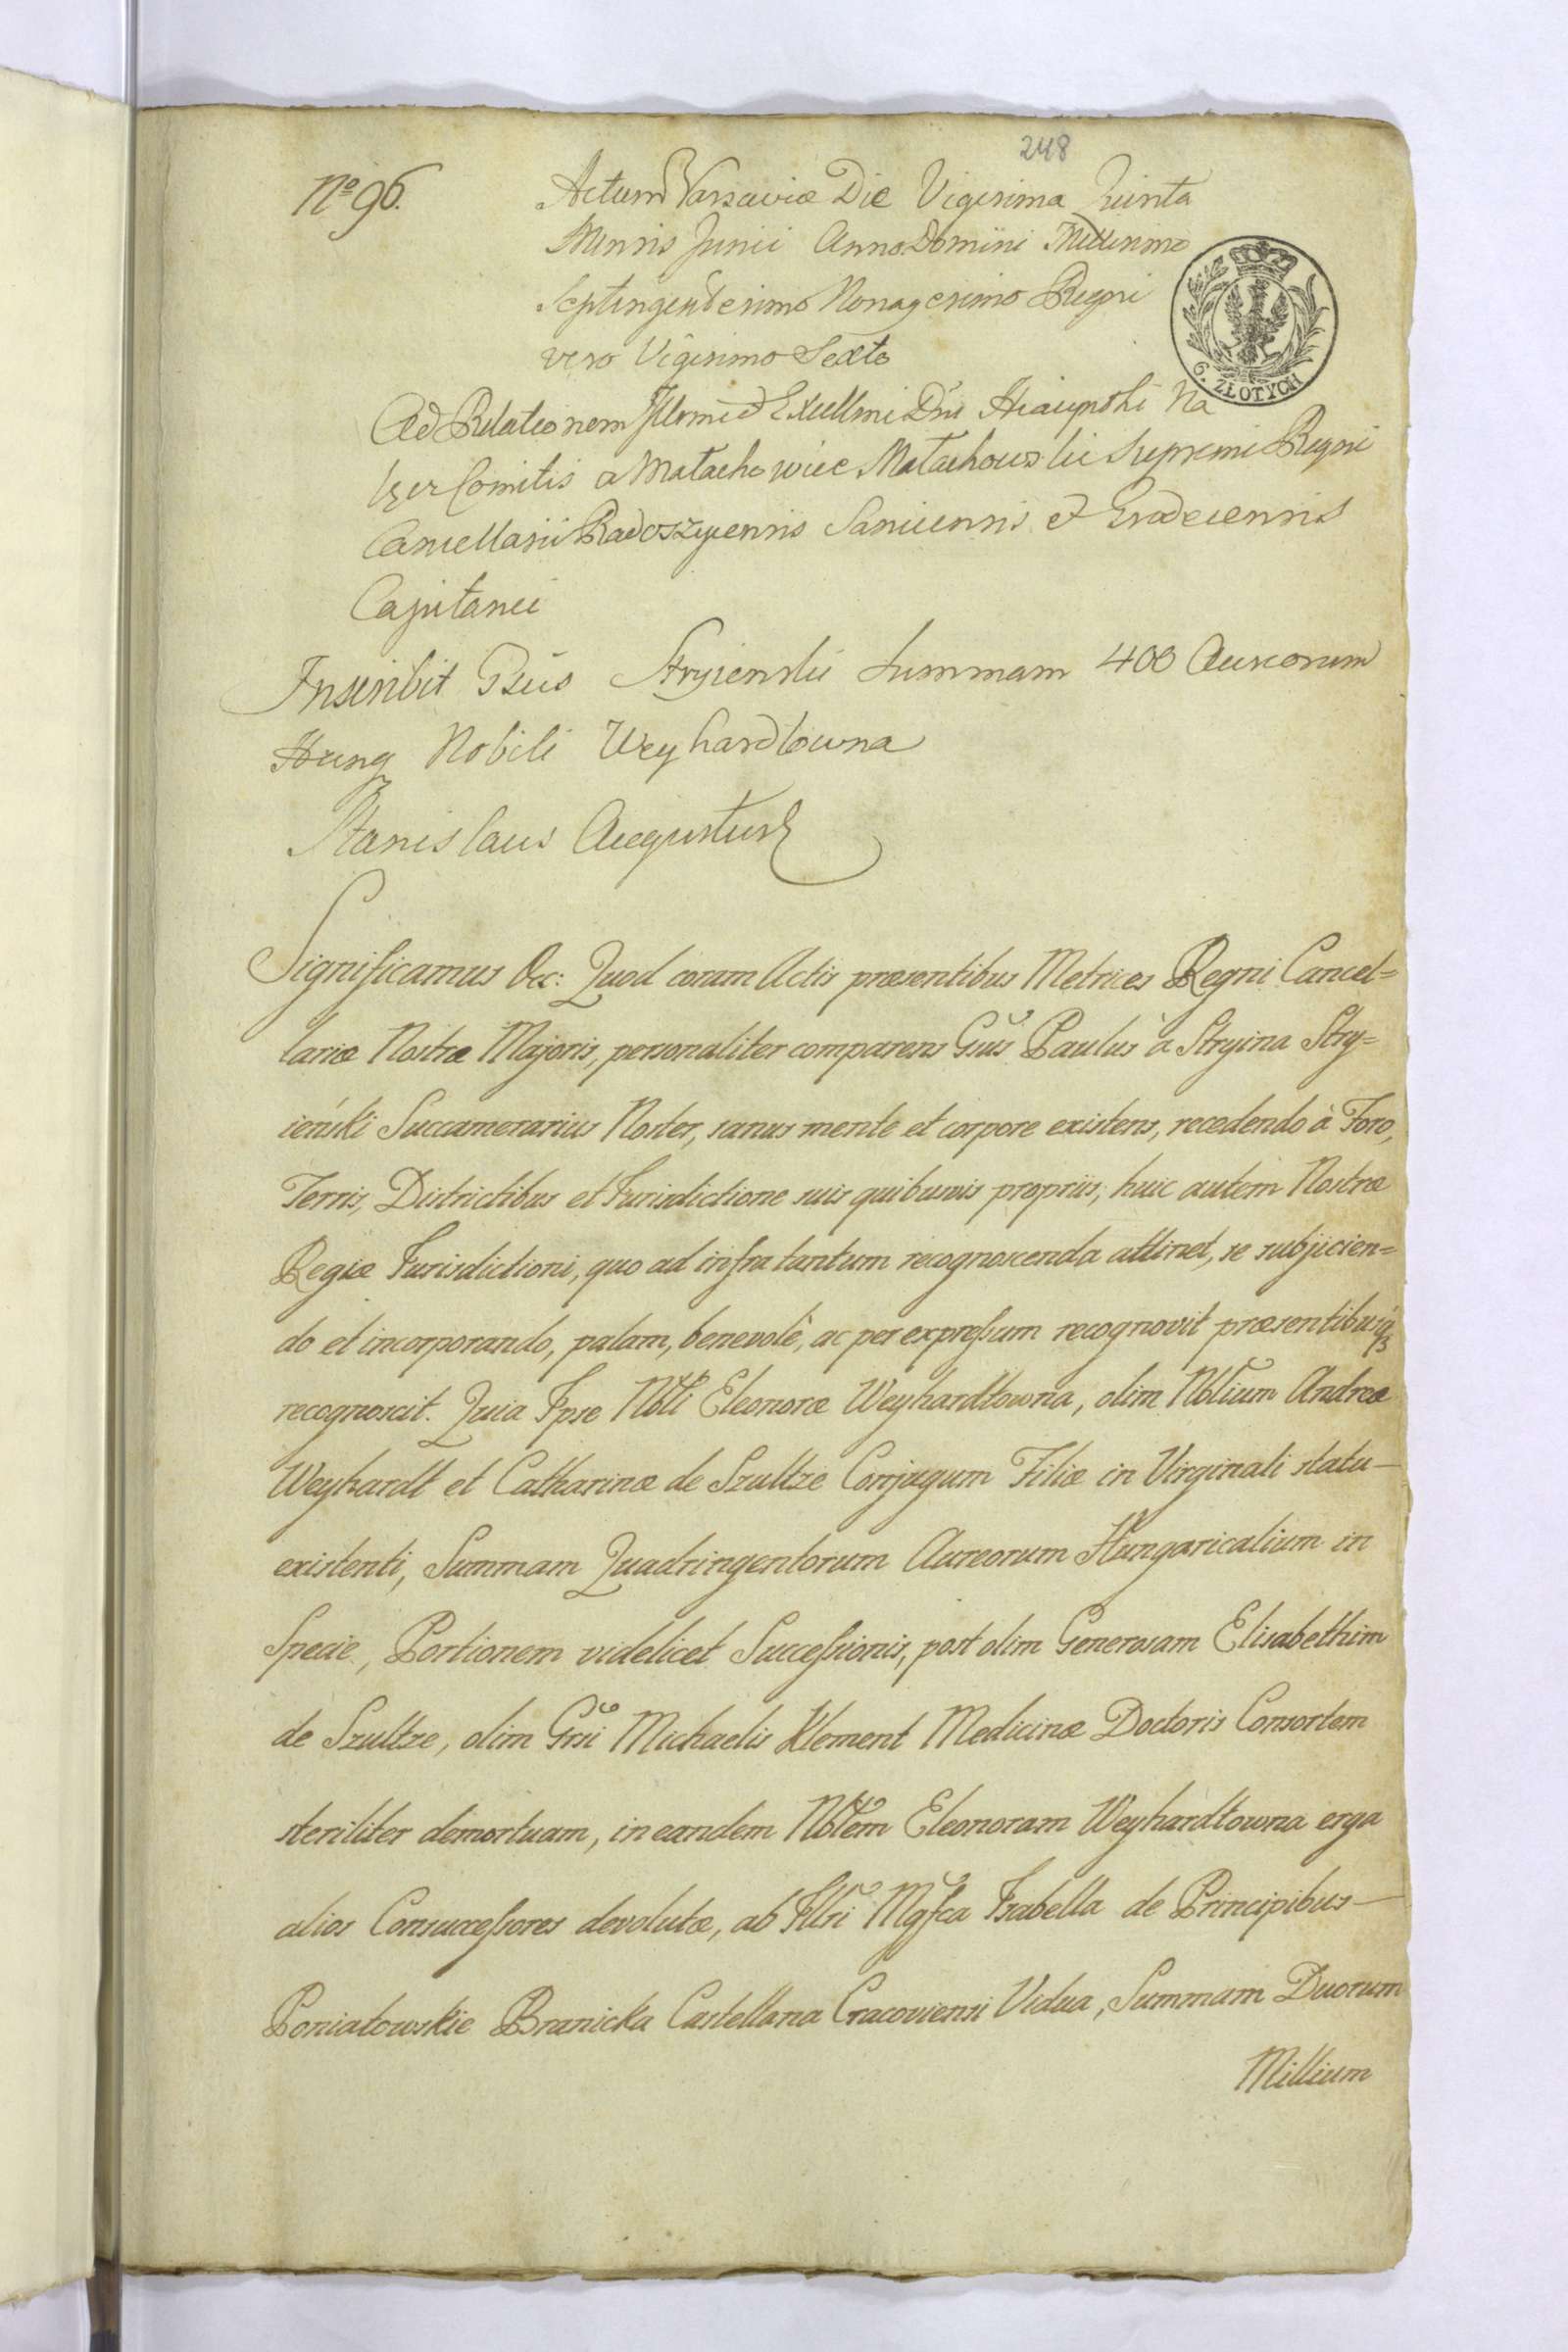 248
Nº 96.
Actum Varsaviæ Die Vigesima Quinta
Mensis Junii Anno Domini Millesimo
Septingentesimo Nonagesimo Regni
vero Vigesimo Sexto
6. ZŁOTYCH
Ad Relationem Illmi et Excellmi Dni Hiacynthi Na
łęcz Comitis a Małachowice Małachowski Supremi Regni
Cancellarii Radoszycensis Sanicensis et Grodecensis
Capitanei
Inscribit Gsus Stryienski Summam 400 Aureorum
Hung Nobili Weyhardtowna
Stanislaus Augustus
Significamus &c: Quod coram Actis præsentibus Metrices Regni Cancel=
lariæ Nostræ Majoris, personaliter comparens Gsus Paulus à Stryina Stry=
ieński Succamerarius Noster, sanus mente et corpore existens, recedendo à Foro,
Terris, Districtibus et Jurisdictione suis quibusvis propriis, huic autem Nostræ
Regiæ Jurisdictioni, quo ad infra tantum recognoscenda attinet, se subjicien=
do et incorporando, palam, benevolè, ac per expressum recognovit præsentibusq3
recognoscit. Quia Ipse Nbli Eleonoræ Weyhardtowna, olim Nblium Andreæ
Weyhardt et Catharinæ de Szultze Conjugum Filiæ in Virginali statu
existenti, Summam Quadringentorum Aureorum Hungaricalium in
Specie, Portionem videlicet Successionis, post olim Generosam Elisabetham
de Szultze, olim Gsi Michaelis Klement Medicinæ Doctoris Consortem
steriliter demortuam, in eandem Nblem Eleonoram Weyhardtowna erga
alios Consuccessores devolutæ, ab Illri Mgfca Isabella de Principibus
Poniatowskie Branicka Castellana Cracoviensi Vidua, Summam Duorum
Millium